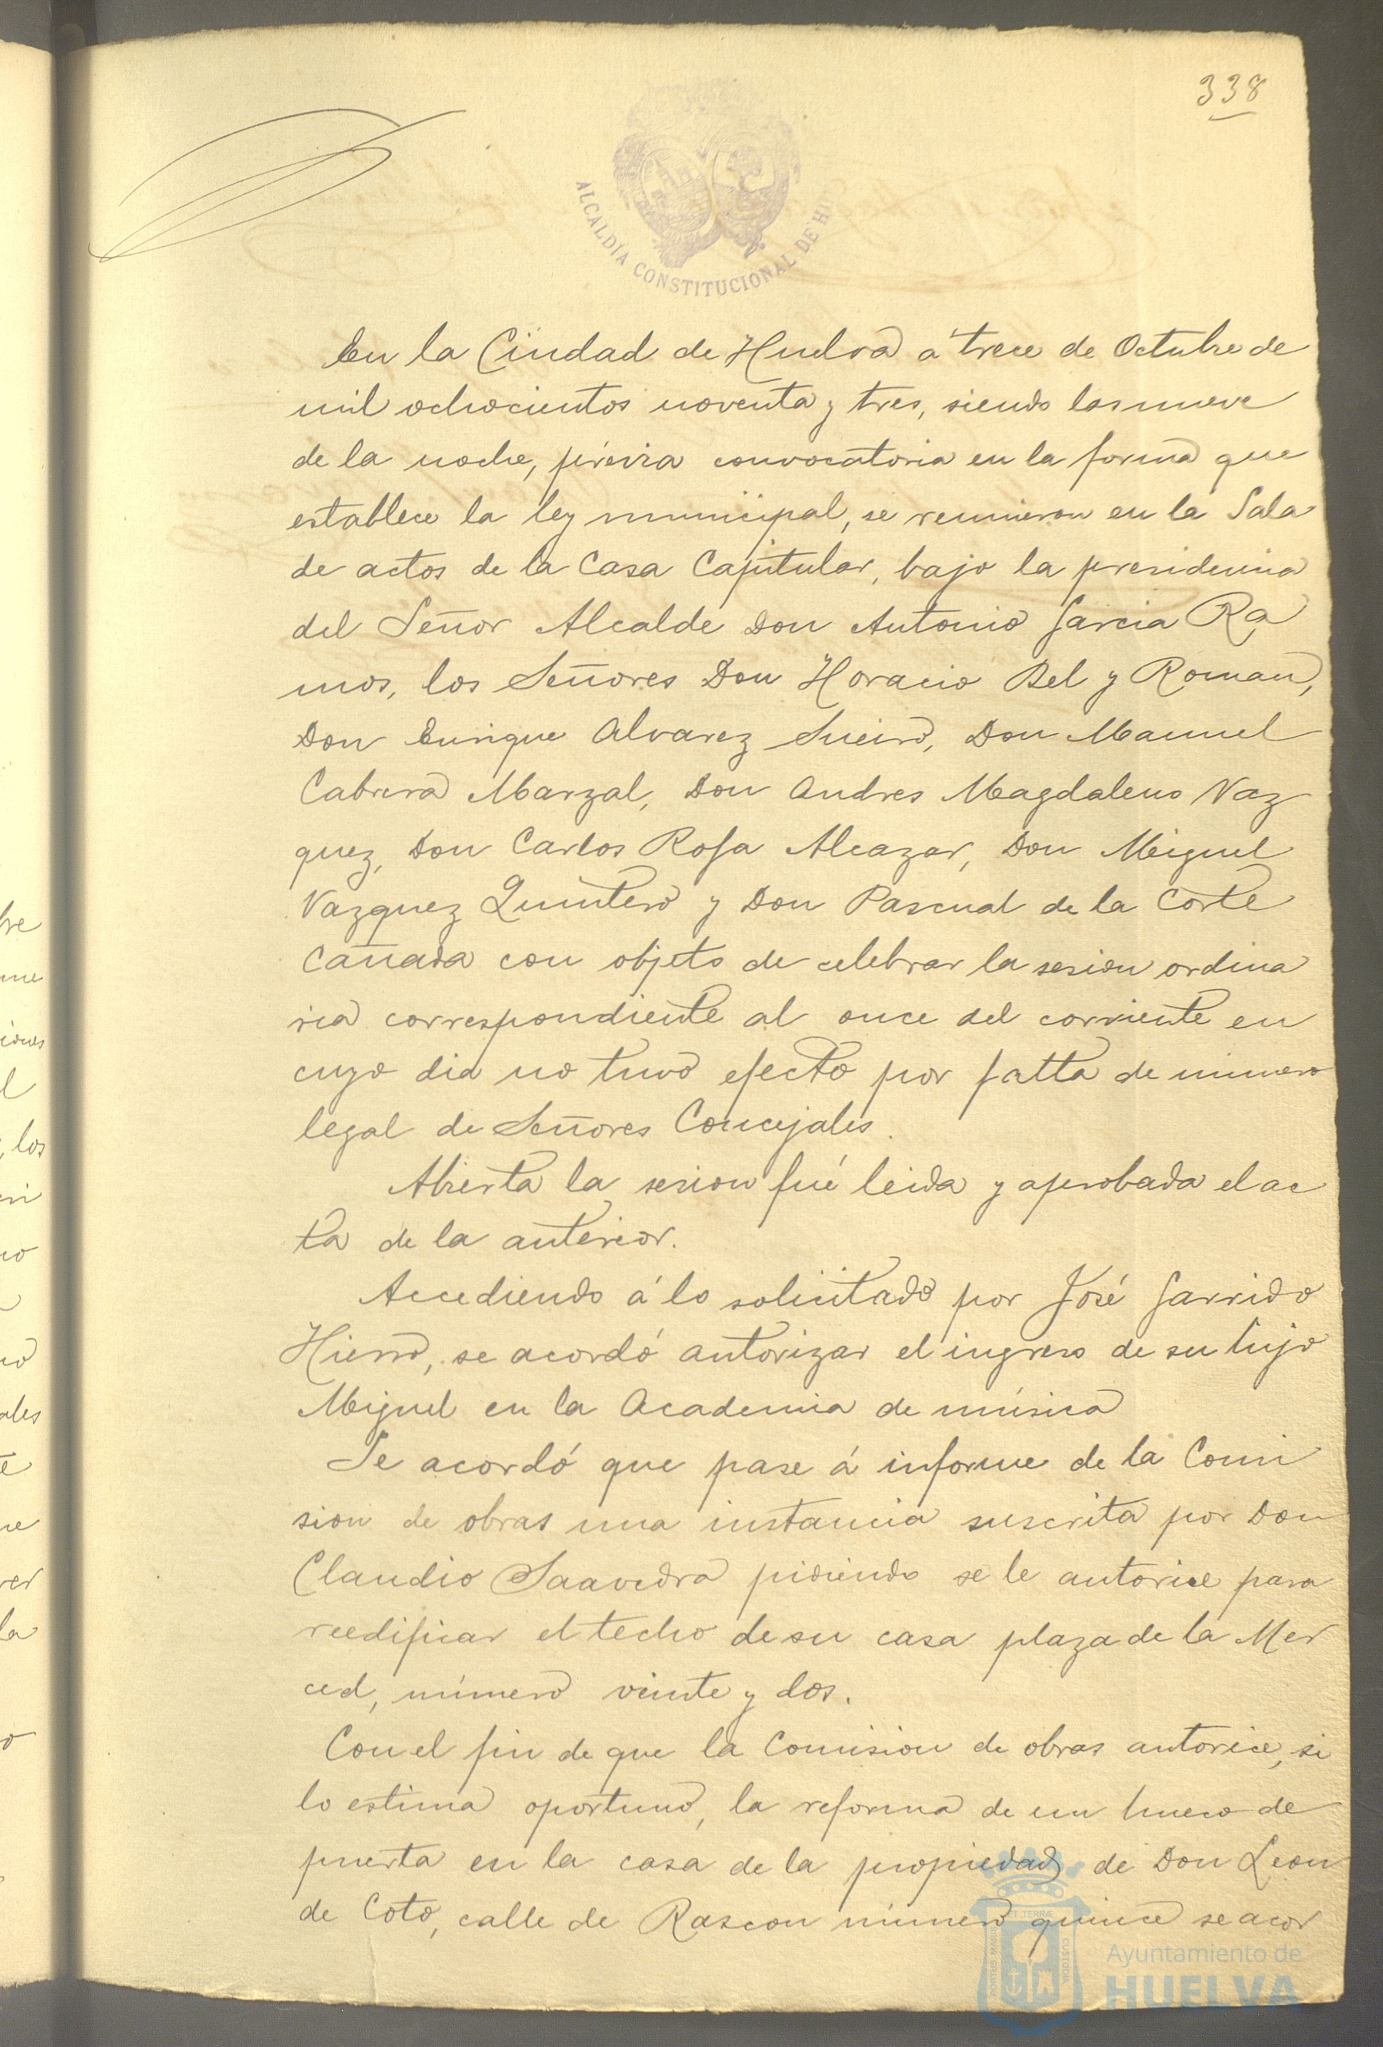 338
ALCALDÍA CONSTITUCIONAL DE HU
En la Ciudad de Huelva á trece de Octubre de
mil ochocientos noventa y tres, siendo las nueve
de la noche, prévia convocatoria en la forma que
establece la ley municipal, se reunieron en la Sala
de actos de la Casa Capitular, bajo la presidencia
del Señor Alcalde Don Antonio Garcia Ra
mos, los Señores Don Horacio Bel y Roman,
Don Enrique Alvarez Sueiro, Don Manuel
Cabrera Marzal, Don Andres Magdaleno Vaz
quez, Don Carlos Rofa Alcazar, Don Miguel
Vazquez Quintero y Don Pascual de la Corte
Cañada con objeto de celebrar la sesion ordina
ria correspondiente al once del corriente en
cuyo dia no tuvo efecto por falta de número
legal de Señores Concejales.
Abierta la sesion fué leida y aprobada el ac
ta de la anterior.
Accediendo á lo solicitado por José Garrido
Hierro, se acordó autorizar el ingreso de su hijo
Miguel en la Academia de música
Se acordó que pase á informe de la Comi
sion de obras una instancia suscrita por Don
Claudio Saavedra pidiendo se le autorice para
reedificar el techo de su casa plaza de la Mer
ced, número veinte y dos.
Con el fin de que la Comision de obras autorice, si
lo estima oportuno, la reforma de un hueco de
puerta en la casa de la propiedad de Don Leon
de Coto, calle de Rascon número quince se acor
Ayuntamiento de
HUELVA